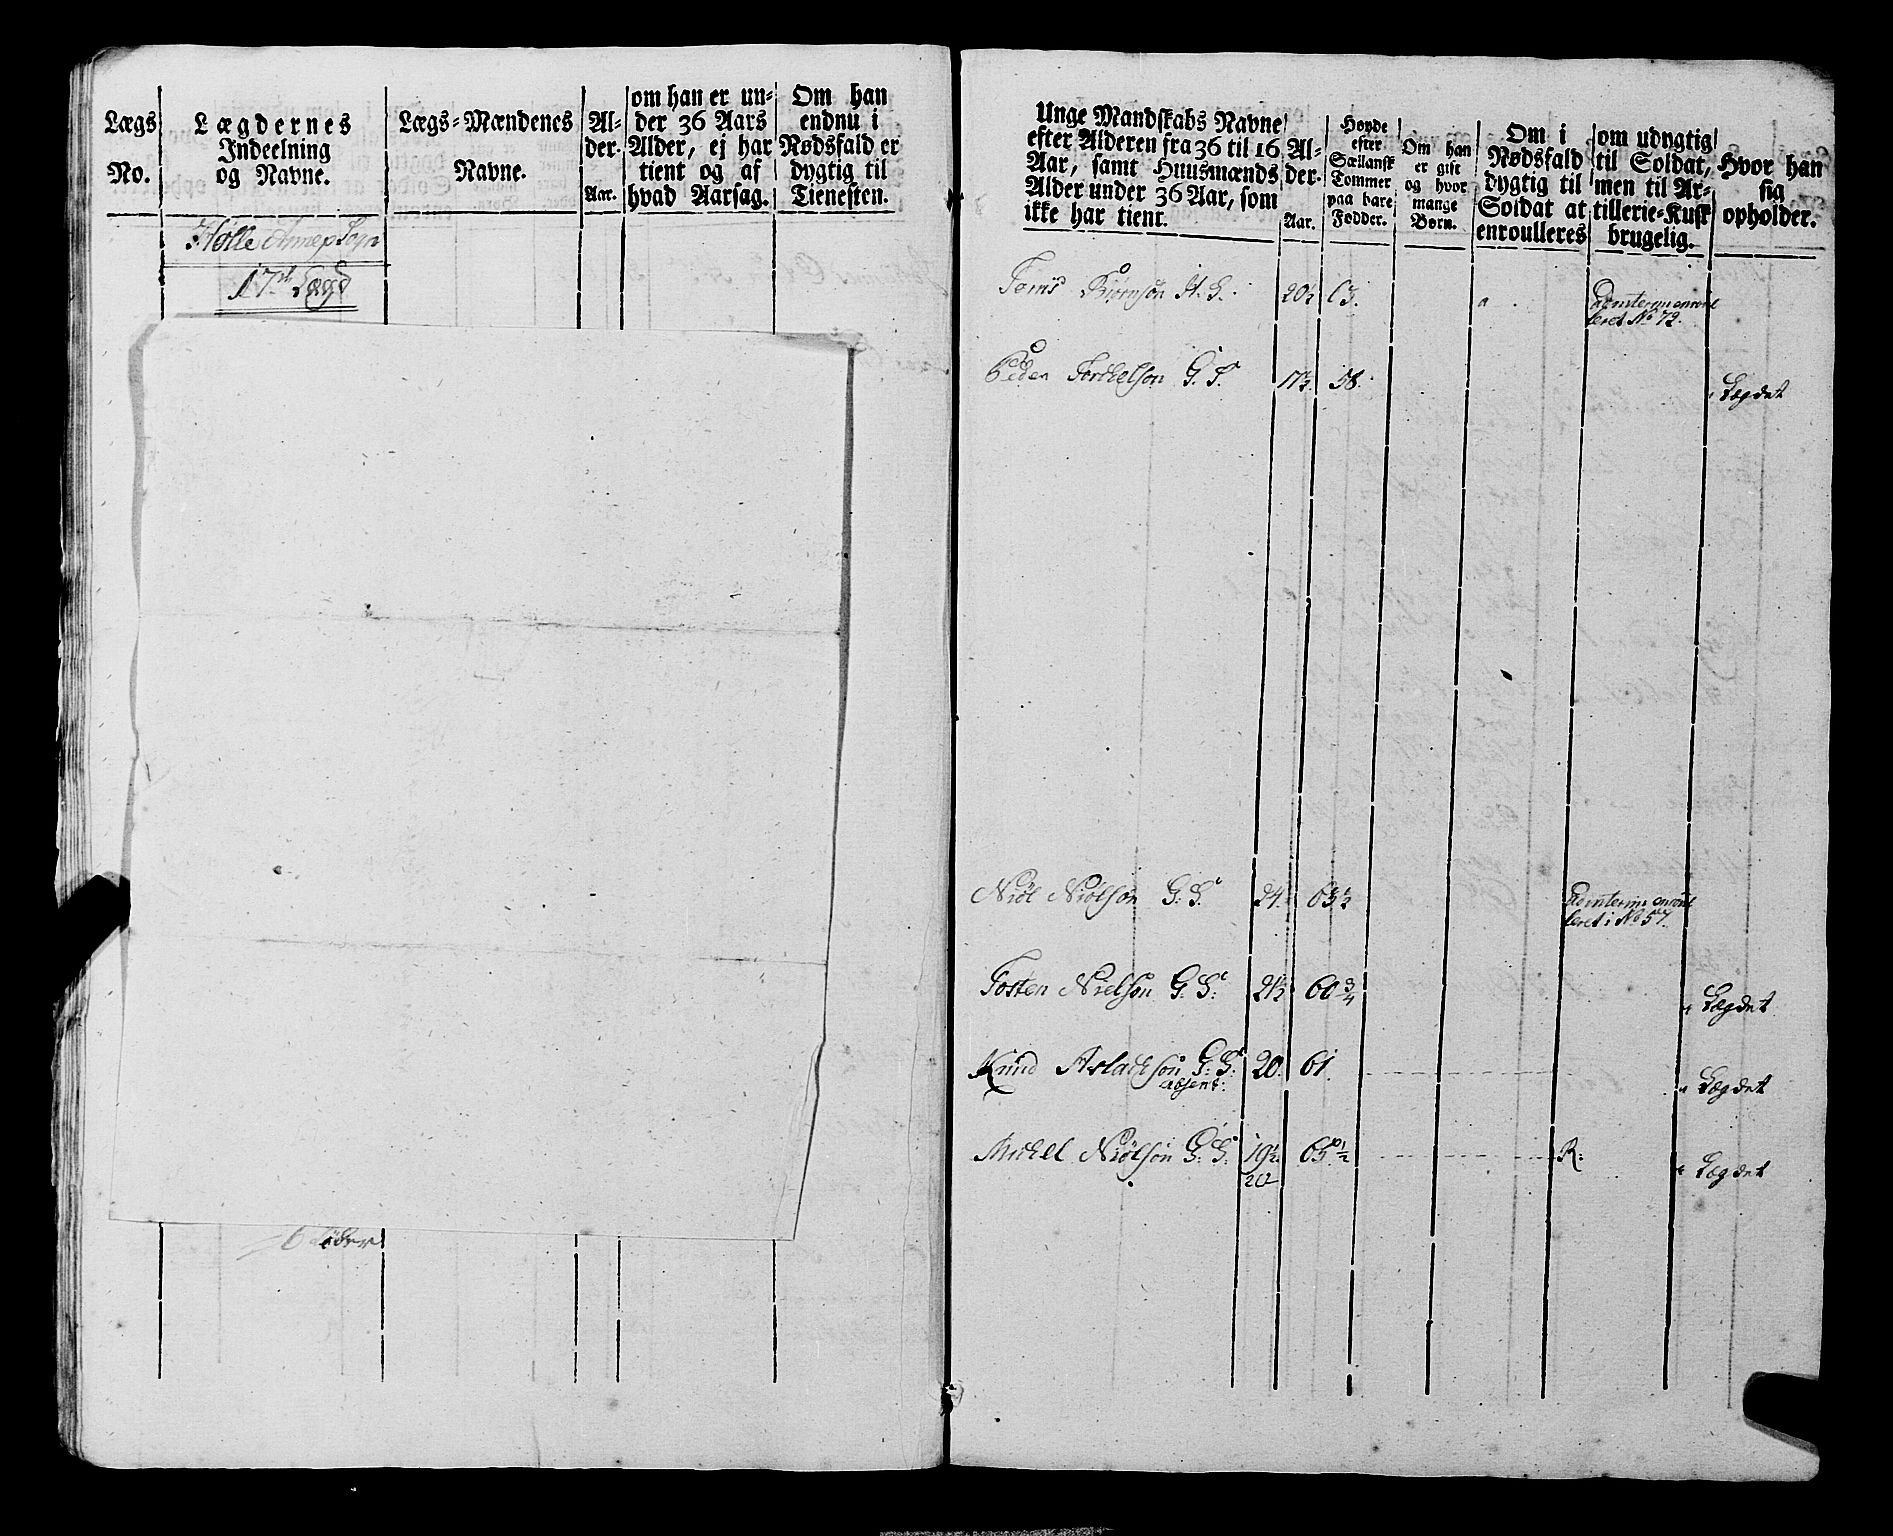 Lægs
No.
Lægdernes
Indeelning
og Navne.
Lægs-Mændenes
Navne.
Al-
der.
Aar.
om han er un-
der 36 Aars
Alder, ej har
tient og af
hvad Aarsag.
Om han
endnu i
Nødsfald er
dygtig til
Tienesten.
Holle Annex Sogn
17de Lægd
Unge Mandskabs Navne
efter Alderen fra 36 til 16
Aar, samt Huusmænds
Alder under 36 Aar, som
ikke har tient.
Al-
der.
Aar.
Høyde
efter
Sællansk
Tommer
paa bare
Fødder.
Om han
er gift
og hvor
mange
Børn.
Om i
Nødsfald
dygtig til
Soldat at
enroulleres
om udygtig
til Soldat,
men til Ar-
tillerie-Kusk
brugelig.
Hvor han
sig
opholder.
Biørnsøn H. S. 20½ 63.
leret No 72.
Peder Torchelsøn G. S. 17½ 58. Lægdet
Niøl Niølsøn G: S. 24. 63½
leret i No 57.
Tosten Nielsøn G: S: 21½ 60¾ Lægdet
Knud Aslachsøn G: S: 20. 61. Lægdet
absent:
Michel Niølsøn G: S: 19½ 63½ R: Lægdet
20